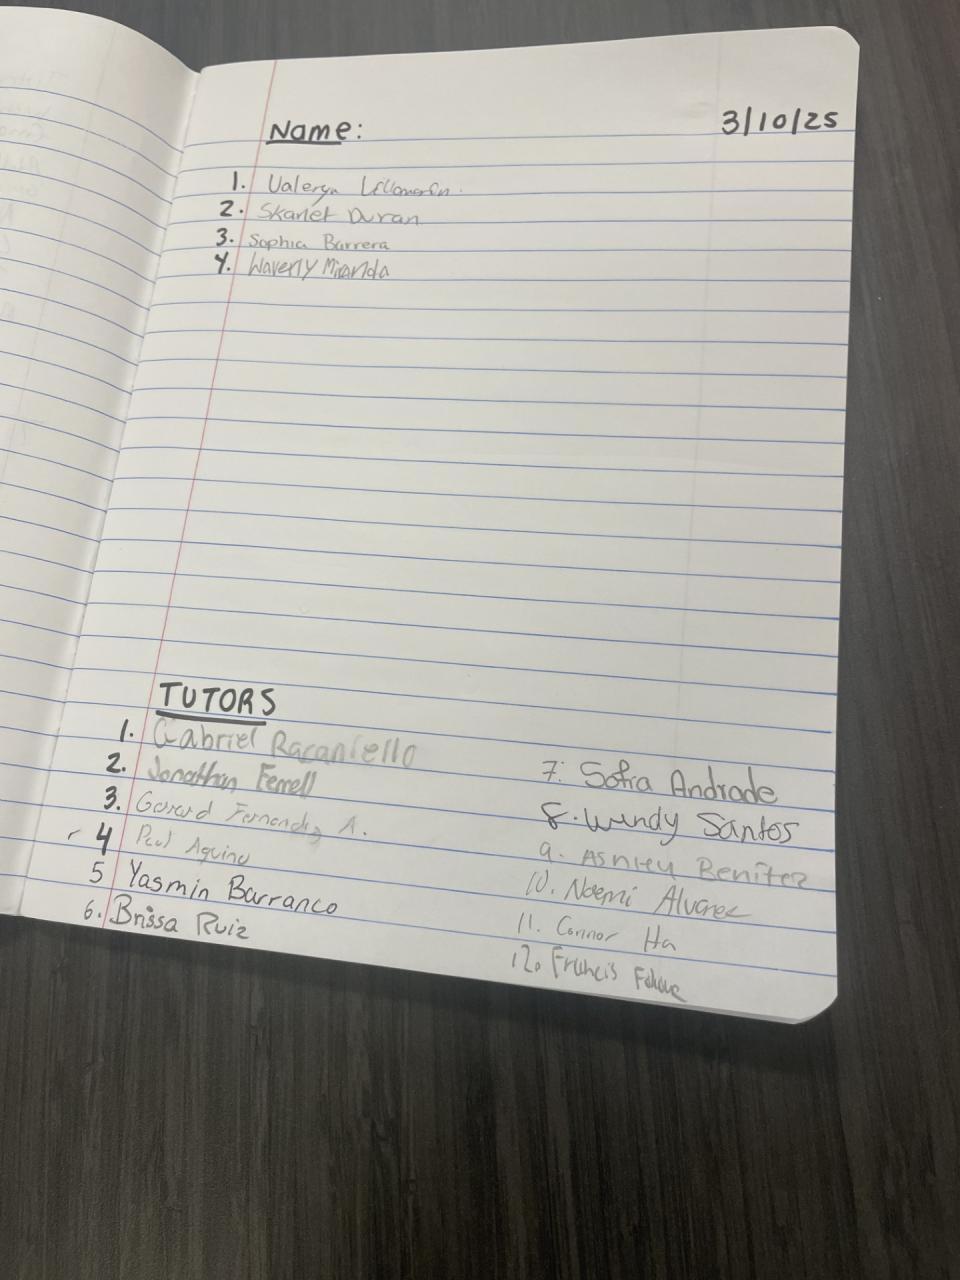 Name:
3/10/25
1. Valerya
2. Skarlet Duran
3. Sophia Barrera
4. Waverly Miranda
TUTORS
1. Gabriel Racaniello
2. Jonathan Ferrell
3. Gerard Fernandez A.
4 Paul Aquino
5 Yasmin Barranco
6. Brissa Ruiz
7. Sofia Andrade
8. Wendy Santos
9. Ashley Benitez
10. Noemi Alvarez
11. Connor Ha
12. Francis